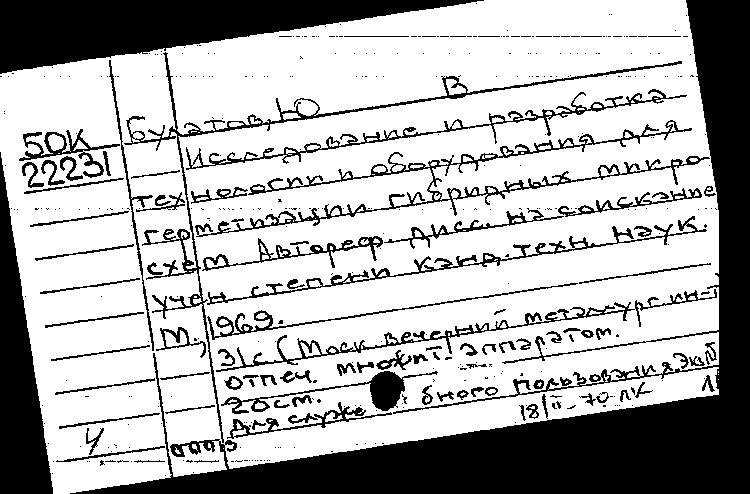 50К
22231
Булатов, Ю В
Исследование и разработка
технологии и оборудования для
герметизации гибридных микро-
схем Автореф. дисс. на соискание
учен степени канд. техн. наук.
М., 1969.
31с (Моск вечерний металлург ин-т)
отпеч. множит. аппаратом.
20см.
Для служебного пользования. Экз. N
18/II-70 ЛК
Ч